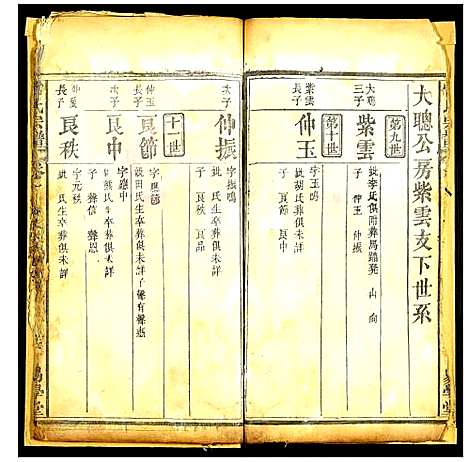 大聰公房紫雲支下世系
第九世
大聰
三子
紫雲
妣李氏俱附葬馬蹄凳 山 向
子 仲玉 仲振
第十世
紫雲
長子
仲玉
字玉鳴
妣胡氏葬俱未詳
子 艮節 艮中
次子
仲振
字振鳴
妣 氏生卒葬俱未詳
子 艮秩 艮品
十一世
仲玉
長子
艮節
字應
妣田氏生卒葬俱未詳子
次子
艮中
字應中
妣熊氏生卒葬俱未詳
子
仲振
長子
艮秩
字元秩
妣 氏生卒葬俱未詳
易學堂
易學堂